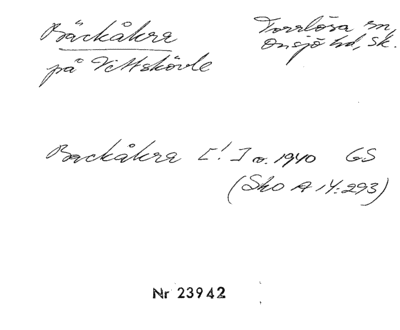 Bäckåkra
Torrlösa sn,
Onsjö hd, Sk.
på Vittskövle
Backåkra [!] r. 1940 GS
(Sko A 14:293)
Nr 23942